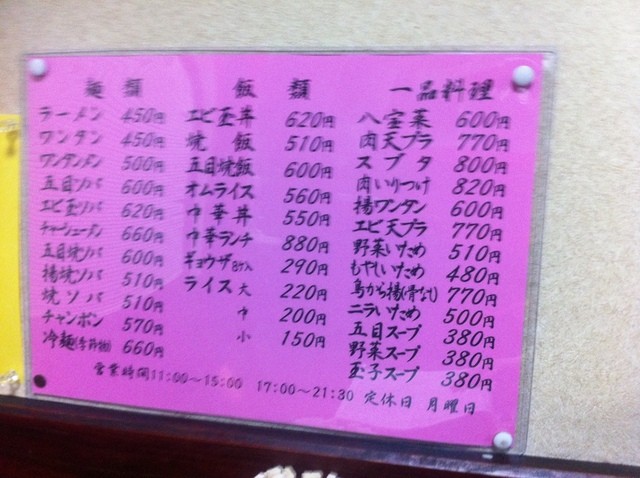 麺 類
ラーメン 450円
ワンタン 450円
ワンタンメン 500円
五目ソバ 600円
エビ玉ソバ 620円
チャーシューメン 660円
五目焼ソバ 600円
揚焼ソバ 510円
焼ソバ 510円
チャンポン 570円
冷麺(季節物) 660円
飯 類
エビ玉丼 620円
焼飯 510円
五目焼飯 600円
オムライス 560円
中華丼 550円
中華ランチ 880円
ギョウザ8ケ入 290円
ライス 大 220円
中 200円
小 150円
一品料理
八宝菜 600円
肉天プラ 770円
スブタ 800円
肉いりつけ 820円
揚ワンタン 600円
エビ天プラ 770円
野菜いため 510円
もやしいため 480円
鳥から揚(骨なし) 770円
ニラいため 500円
五目スープ 380円
野菜スープ 380円
玉子スープ 380円
営業時間11:00〜15:00 17:00〜21:30 定休日 月曜日